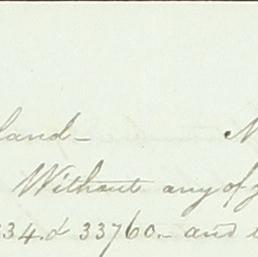 land-
Without any of
334. & 33760.- and